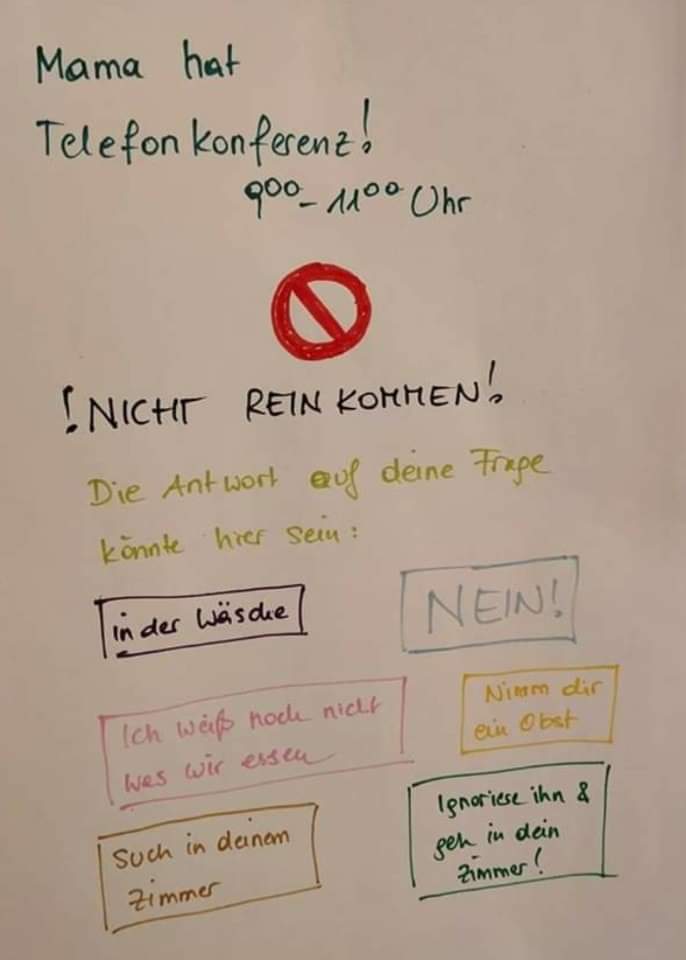 Mama hat
Telefonkonferenz!
9⁰⁰-11⁰⁰ Uhr
!NICHT REINKOMMEN!
Die Antwort auf deine Frage
könnte hier sein:
in der Wäsche
NEIN!
Ich weiß noch nicht
was wir essen
Nimm dir
ein Obst
Such in deinem
Zimmer
Ignoriere ihn &
geh in dein
Zimmer!